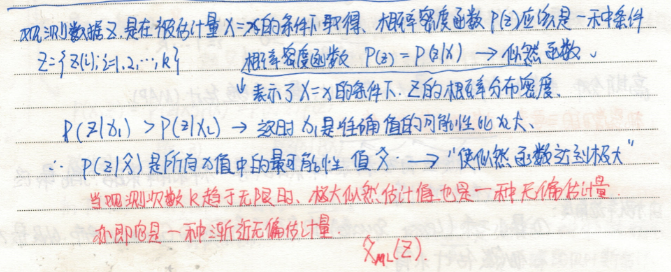 观测数据Z是在被估计量X=x的条件下取得、概率密度函数P(z)应该是一种条件
Z={z(i);i=1,2,…,k} 概率密度函数 P(z)=P(z|x) → 似然函数、
↓ 表示了X=x的条件下、Z的概率分布密度、
P(z|x₁) > P(z|x₂) → 这时 x₁是准确值的可能性比x₂大、
∴ P(z|x̂)是所有x值中的最可能性值x̂. → "使似然函数达到极大"
当观测次数k趋于无限时、极大似然估计值也是一种无偏估计量.
亦即它是一种渐近无偏估计量.
x̂ML(Z).